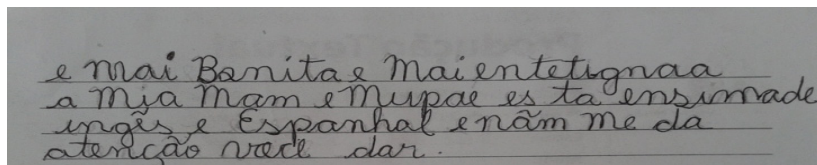 e mai Banita e mai entetignaa
a mia mam e mupae es ta ensimade
ingês e Espanhal e nãm me da
atenção vece dar.